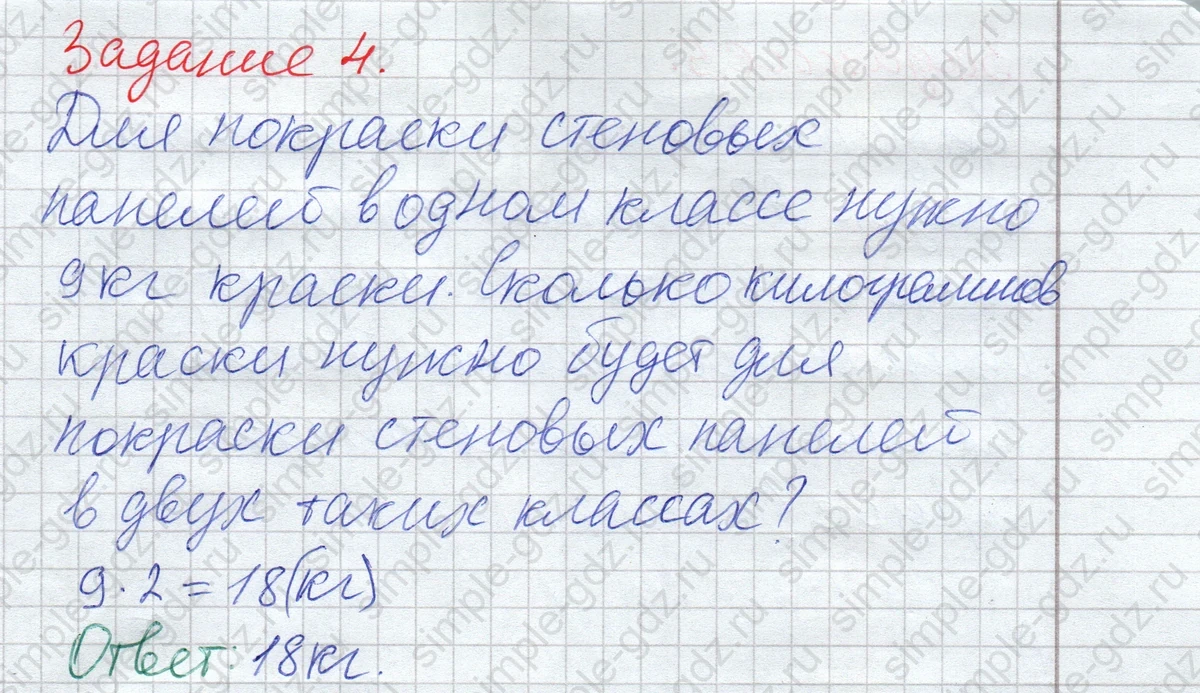 Задание 4.
Для покраски стеновых
панелей в одном классе нужно
9 кг краски. Сколько килограммов
краски нужно будет для
покраски стеновых панелей
в двух таких классах?
9 · 2 = 18 (кг)
Ответ: 18 кг.